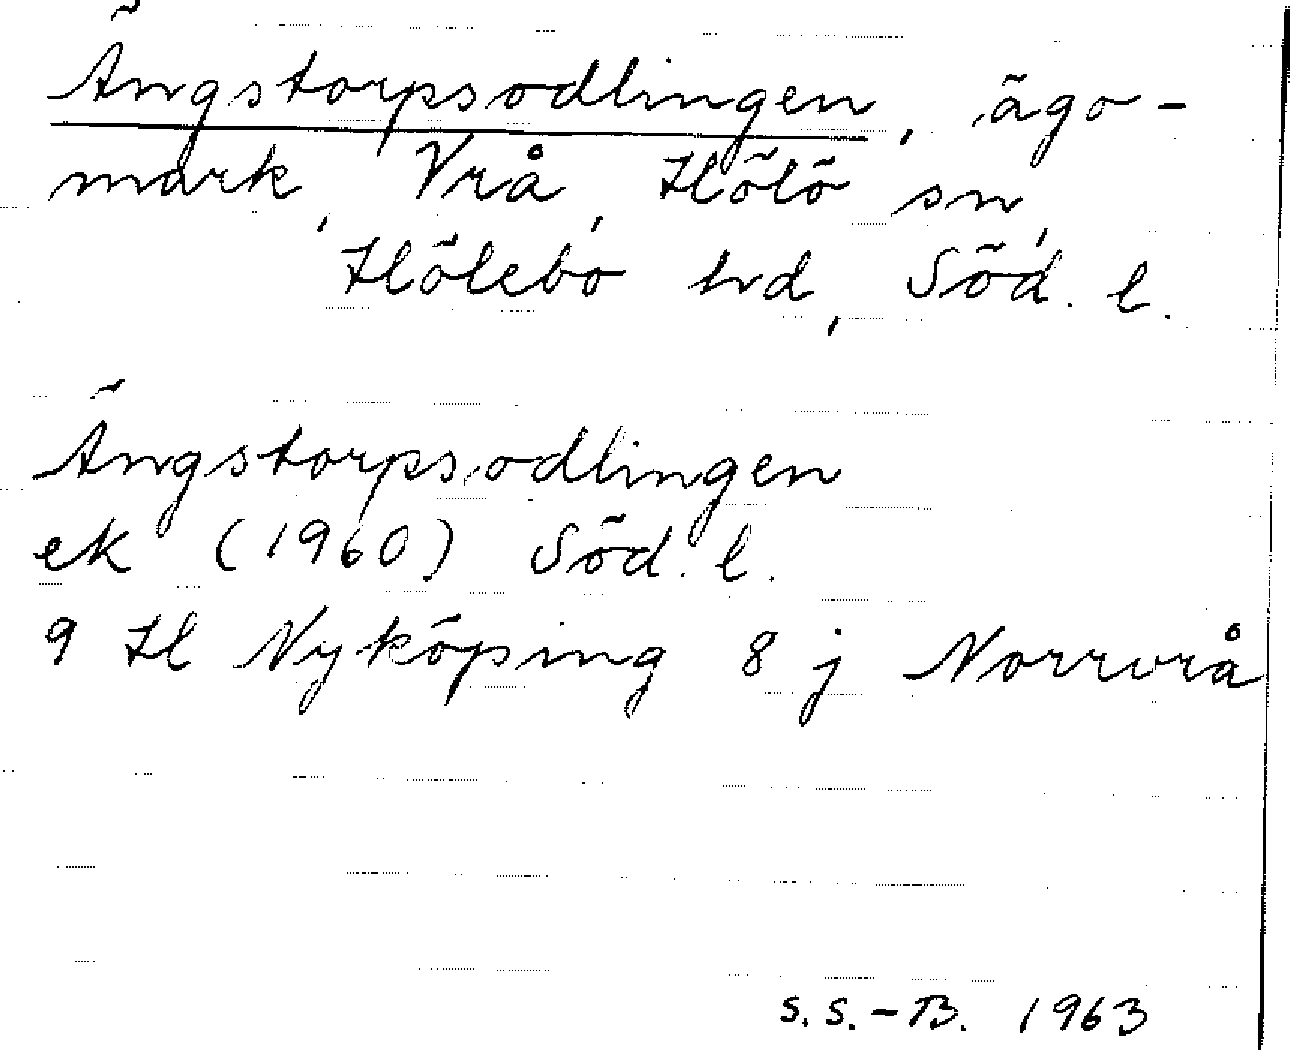 Ängstorpsodlingen, ägo-
mark, Vrå, Hölö sn,
Hölebo hd, Söd. l.
Ängstorpsodlingen
ek (1960) Söd. l.
9 H Nyköping 8 j Norrvrå
S. S.-B. 1963